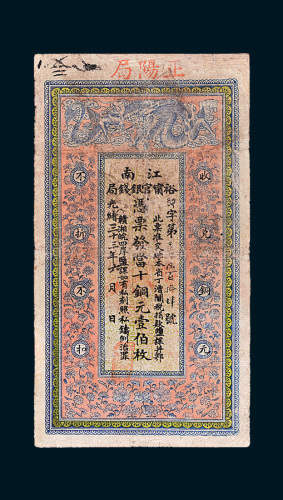 正陽局
江南
裕甯官銀錢局
字第 號
憑票發當十銅元壹佰枚
此票准交納本省丁漕關稅捐款鹽課
贛湘皖四岸鹽課如有私刻照私鑄例治罪
光緒三十三年六月 日
收兌銅元
不折不扣